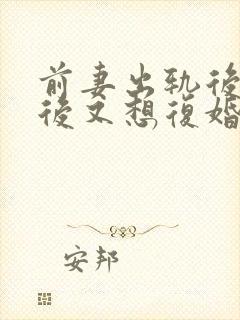 前妻出軌後
後又想復婚
安邦